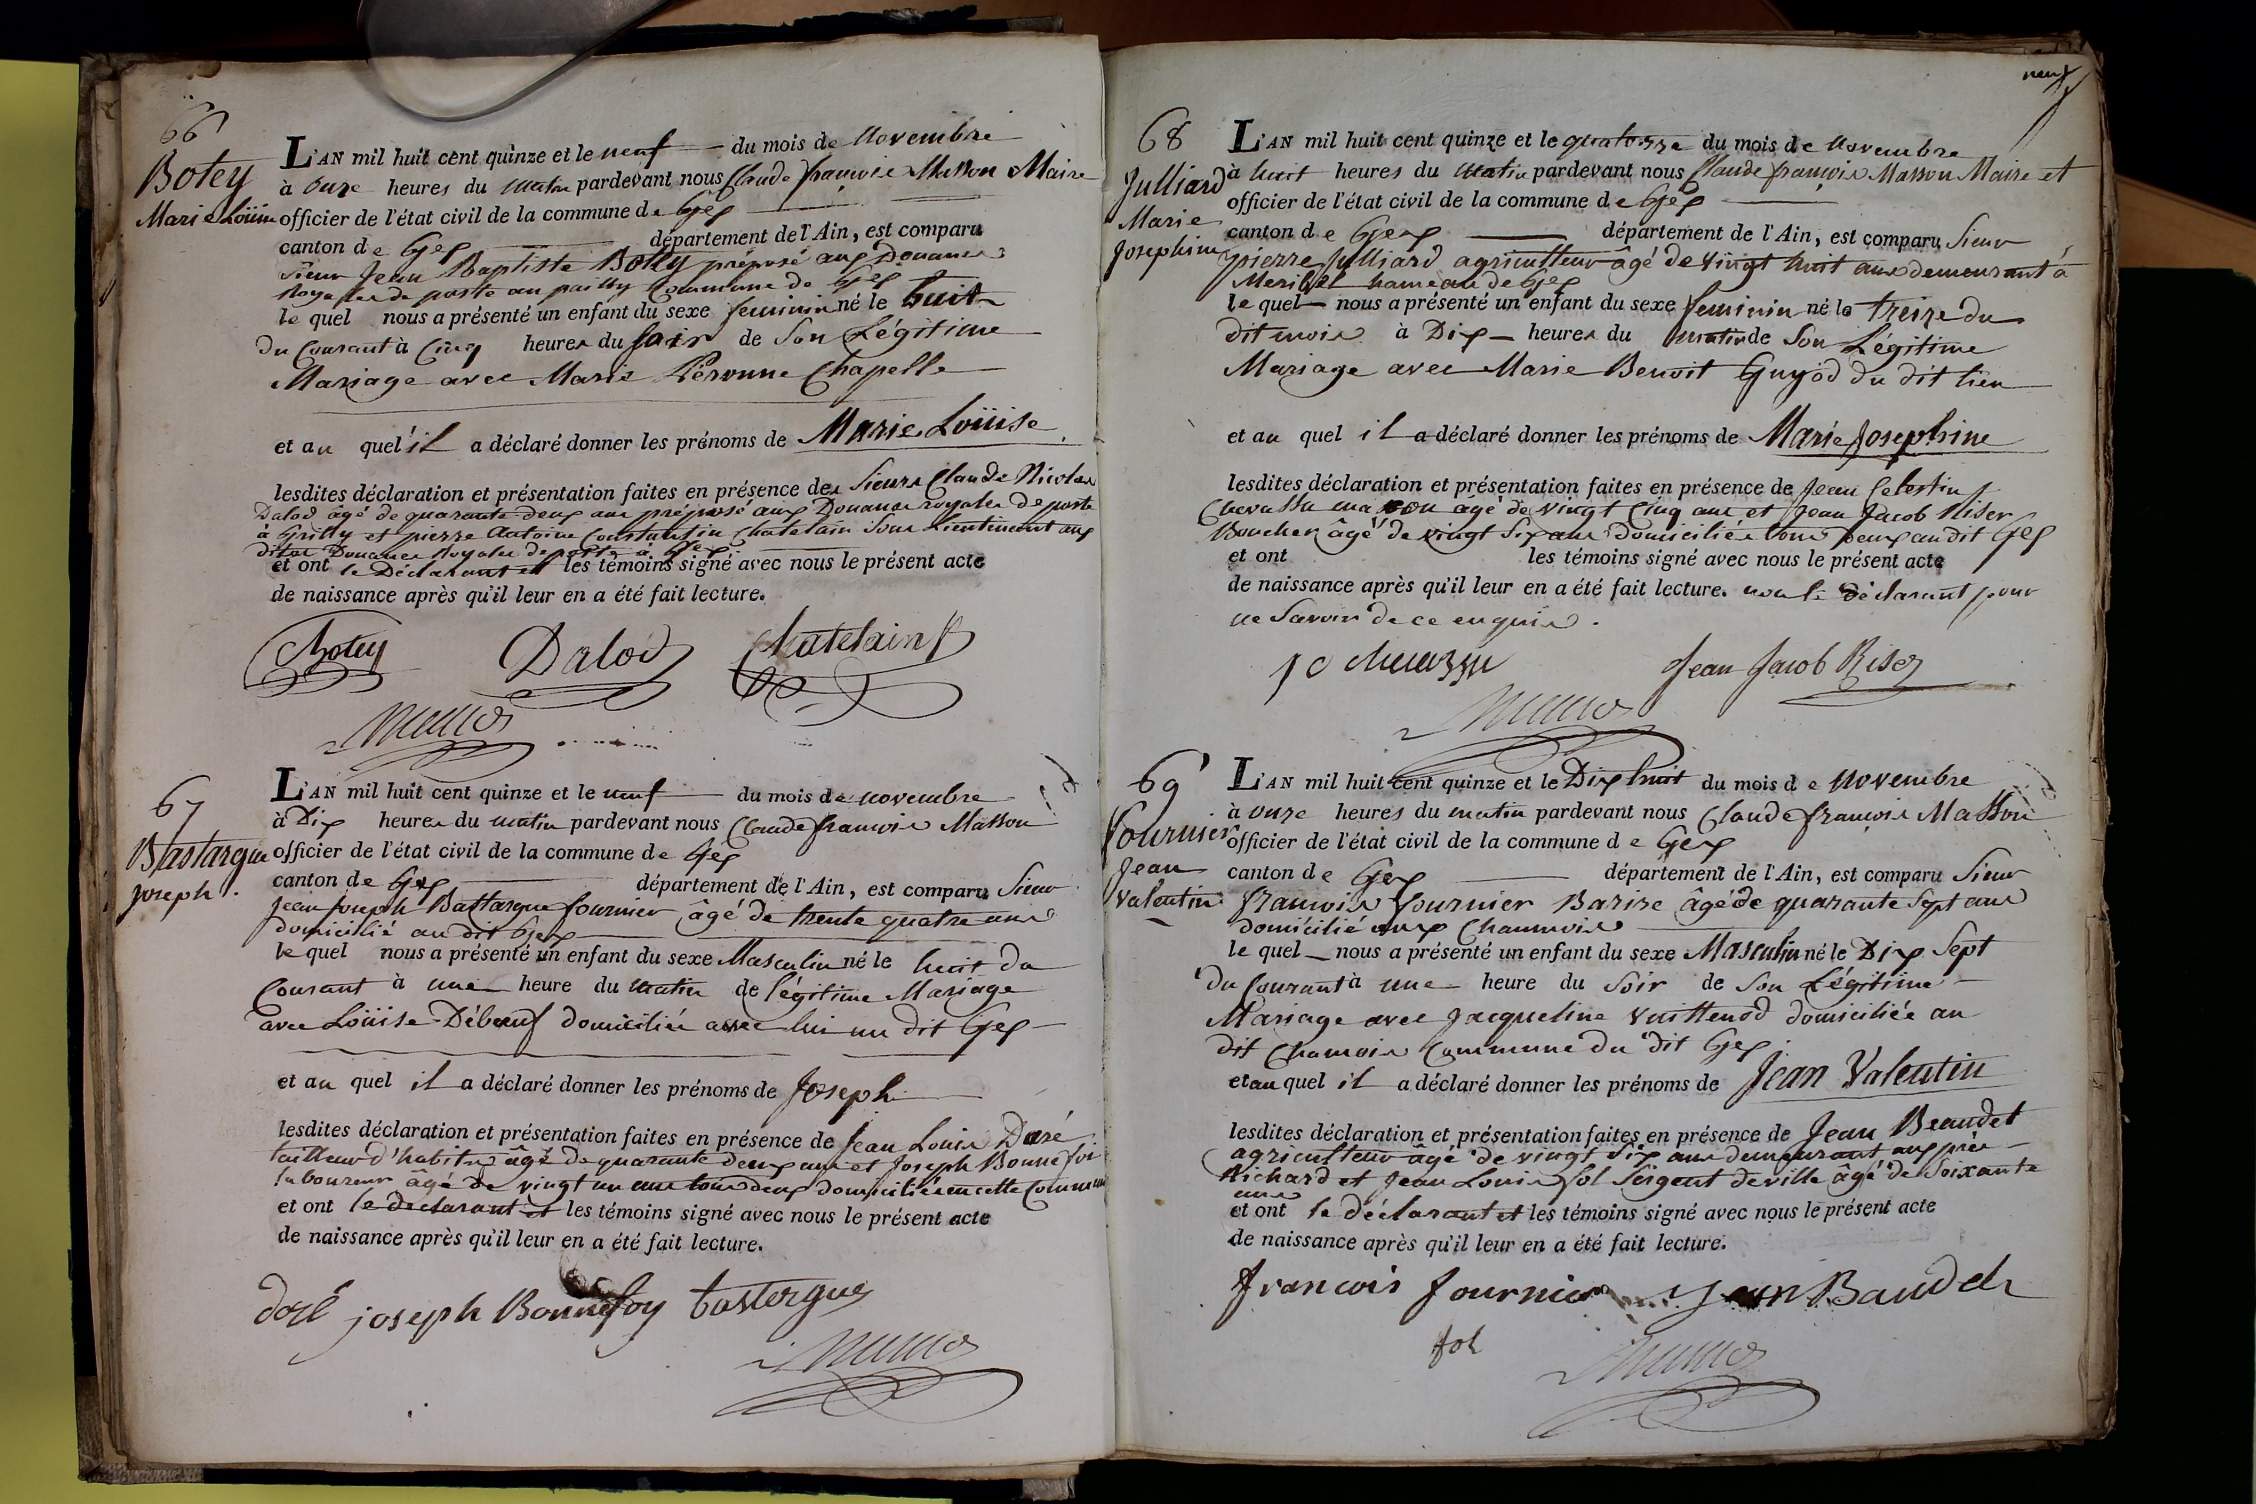 66
Botey
Marie Loüise
L'AN mil huit cent quinze et le neuf du mois de Novembre
à Onze heures du matin pardevant nous Claude françois Masson Maire
officier de l'état civil de la commune de Gex
canton de Gex département de l'Ain, est comparu
Sieur Jean Baptiste Botey préposé aux Douanes
Royales de poste au pailly Commune de Gex
le quel nous a présenté un enfant du sexe feminin né le huit
du Courant à Cinq heures du soir de Son Légitime
Mariage avec Marie Péronne Chapelle
et au quel il a déclaré donner les prénoms de Marie Loüise
lesdites déclaration et présentation faites en présence des Sieurs Claude Nicolas
Dalod âgé de quarante deux ans préposé aux Douanes royales de poste
à Grilly et pierre Antoine Constantin Chatelain Sous Lieutinent aux
dites Douanes Royales de poste à Gex
et ont le Déclarant et les témoins signé avec nous le présent acte
de naissance après qu'il leur en a été fait lecture.
Botey Dalod Chatelain
67
Bastargue
Joseph.
L'AN mil huit cent quinze et le neuf du mois de novembre
à Dix heures du matin pardevant nous Claude françois Masson
officier de l'état civil de la commune de Gex
canton de Gex département de l'Ain, est comparu Sieur
Jean Joseph Bastargue fournier âgé de trente quatre ans
domicilié au dit Gex
le quel nous a présenté un enfant du sexe Masculin né le huit du
Courant à une heure du matin de légitime Mariage
avec Loüise Débeuf domiciliée avec lui au dit Gex
et au quel il a déclaré donner les prénoms de Joseph
lesdites déclaration et présentation faites en présence de Jean Louis Doré
tailleur d'habits âgé de quarante deux ans et Joseph Bonnefoi
laboureur âgé de vingt un ans tous deux domiciliés en cette Commune
et ont le declarant et les témoins signé avec nous le présent acte
de naissance après qu'il leur en a été fait lecture.
doré joseph Bonnefoy bastergue
neuf
68
Julliard
Marie
Josephine
L'AN mil huit cent quinze et le quatorze du mois de Novembre
à huit heures du matin pardevant nous Claude françois Masson Maire et
officier de l'état civil de la commune de Gex
canton de Gex département de l'Ain, est comparu Sieur
pierre Julliard agriculteur âgé de vingt huit ans demeurant à
hameau de Gex
le quel nous a présenté un enfant du sexe feminin né le treize du
dit mois à Dix heures du matin de Son Légitime
Mariage avec Marie Benoit Guyod du dit lieu
et au quel il a déclaré donner les prénoms de Marie Josephine
lesdites déclaration et présentation faites en présence de Jean Celestin
Chevassu maçon âgé de vingt Cinq ans et Jean Jacob Riser
Boucher âgé de vingt Six ans domiciliés tous deux au dit Gex
et ont les témoins signé avec nous le présent acte
de naissance après qu'il leur en a été fait lecture. non le déclarant pour
ne Savoir de ce enquis.
Jean Jacob Riser
69
fournier
Jean
Valentin
L'AN mil huit cent quinze et le Dix huit du mois de Novembre
à onze heures du matin pardevant nous Claude françois Masson
officier de l'état civil de la commune de Gex
canton de Gex département de l'Ain, est comparu Sieur
françois fournier Barize âgé de quarante Sept ans
domicilié aux Chaumois
le quel nous a présenté un enfant du sexe Masculin né le Dix Sept
du Courant à une heure du Soir de Son Légitime
Mariage avec Jacqueline Vuittenod domiciliée au
dit Chamois Commune du dit Gex
et au quel il a déclaré donner les prénoms de Jean Valentin
lesdites déclaration et présentation faites en présence de Jean Beaudet
agriculteur âgé de vingt Six ans demeurant aux près
Richard et Jean Louis fol Sergent de ville âgé de Soixante
ans
et ont le déclarant et les témoins signé avec nous le présent acte
de naissance après qu'il leur en a été fait lecture.
francois fournier Jean Baudet
fol